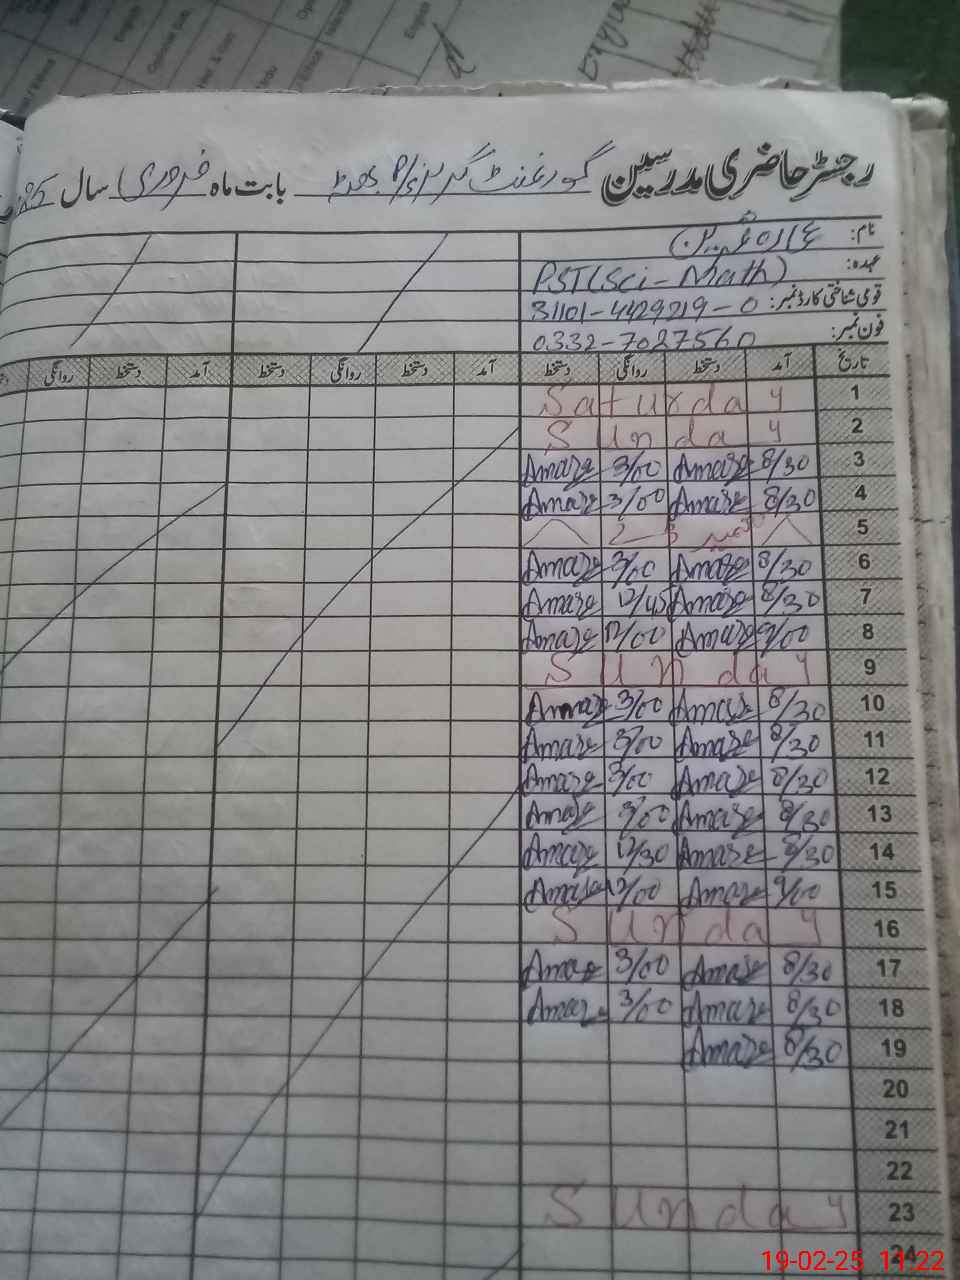 رجسٹر حاضری مدرسین گورنمنٹ گرلز P/S بابت ماہ فروری سال
نام:
عہدہ: PST(Sci-Math)
قومی شناختی کارڈ نمبر: 31101-4429219-0
فون نمبر: 0332-7027560
تاریخ آمد دستخط روانگی دستخط آمد دستخط روانگی دستخط آمد دستخط روانگی
1 Saturday
2 Sunday
3 8/30 Amare 3/00 Amare
4 8/30 Amare 3/00 Amare
5 کشمیر ڈے
6 8/30 Amare 3/00 Amare
7 8/30 Amare 12/45 Amare
8 9/00 Amare 12/00 Amare
9 Sunday
10 8/30 Amare 3/00 Amare
11 8/30 Amare 3/00 Amare
12 8/30 Amare 3/00 Amare
13 8/30 Amare 3/00 Amare
14 8/30 Amare 12/30 Amare
15 9/00 Amare 12/00 Amare
16 Sunday
17 8/30 Amare 3/00 Amare
18 8/30 Amare 3/00 Amare
19 8/30 Amare
20
21
22
23 Sunday
24
19-02-25 11:22